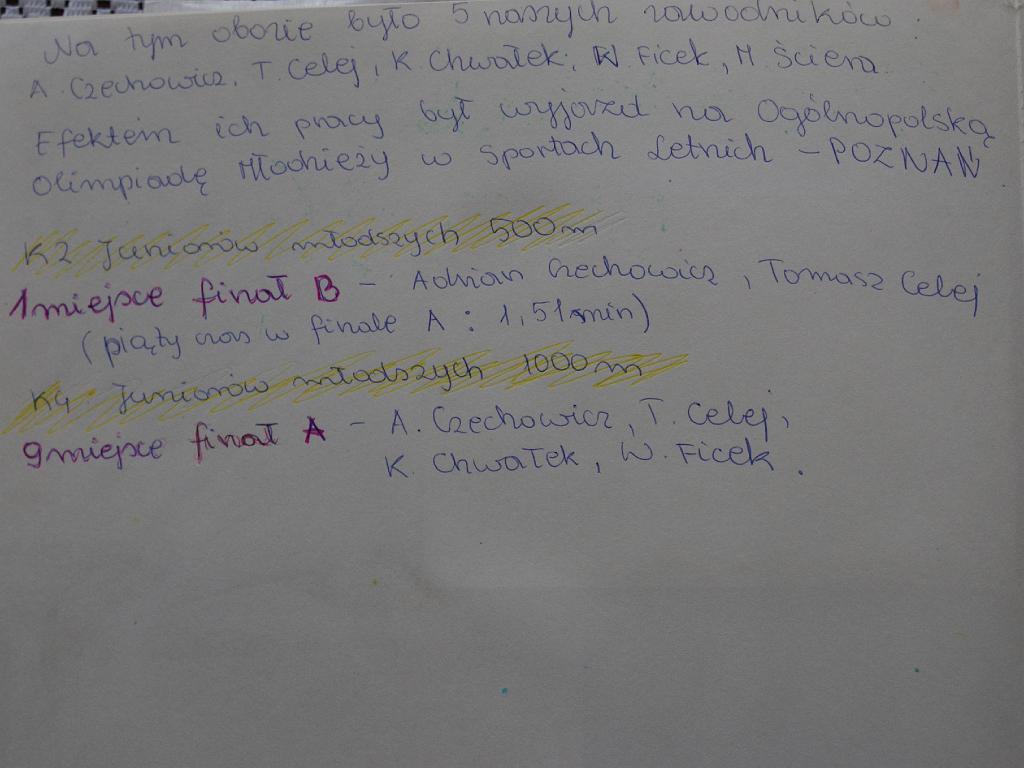 Na tym obozie było 5 naszych zawodników:
A. Czechowicz, T. Celej, K. Chwałek, W. Ficek, M. Ściera
Efektem ich pracy był wyjazd na Ogólnopolską
Olimpiadę Młodzieży w Sportach Letnich - POZNAŃ
K2 Juniorów młodszych 500m
1 miejsce finał B - Adrian Czechowicz, Tomasz Celej
(piąty czas w finale A : 1,51 min)
K4 Juniorów młodszych 1000m
9 miejsce finał A - A. Czechowicz, T. Celej,
K. Chwałek, W. Ficek.